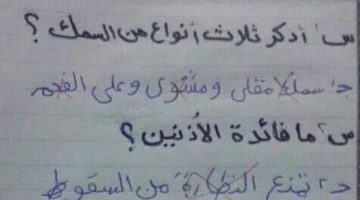 س١ أذكر ثلاث أنواع من السمك ؟
ج١ سمك مقلى ومشوى وعلى الفحم
س٢ ما فائدة الأذنين ؟
ج٢ تمنع النظارة من السقوط